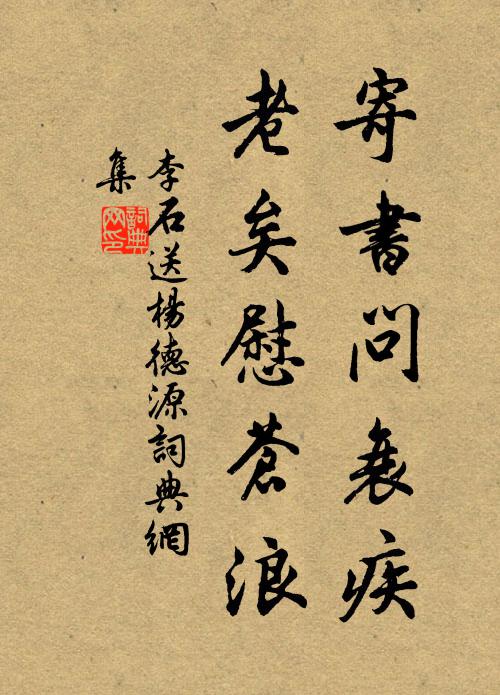 寄書問衰疾
老矣慰蒼浪
李石送楊德源詞典網
集
詞典网印